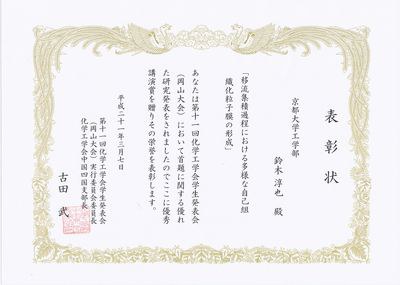 表彰状
京都大学工学部
鈴木淳也 殿
「移流集積過程における多様な自己組
織化粒子膜の形成」
あなたは第十一回化学工学会学生発表会
（岡山大会）において首題に関する優れ
た研究発表をされましたのでここに優秀
講演賞を贈りその栄誉を表彰します。
平成二十一年三月七日
第十一回化学工学会学生発表会
（岡山大会）実行委員会委員長
化学工学会中国四国支部長
古田 武